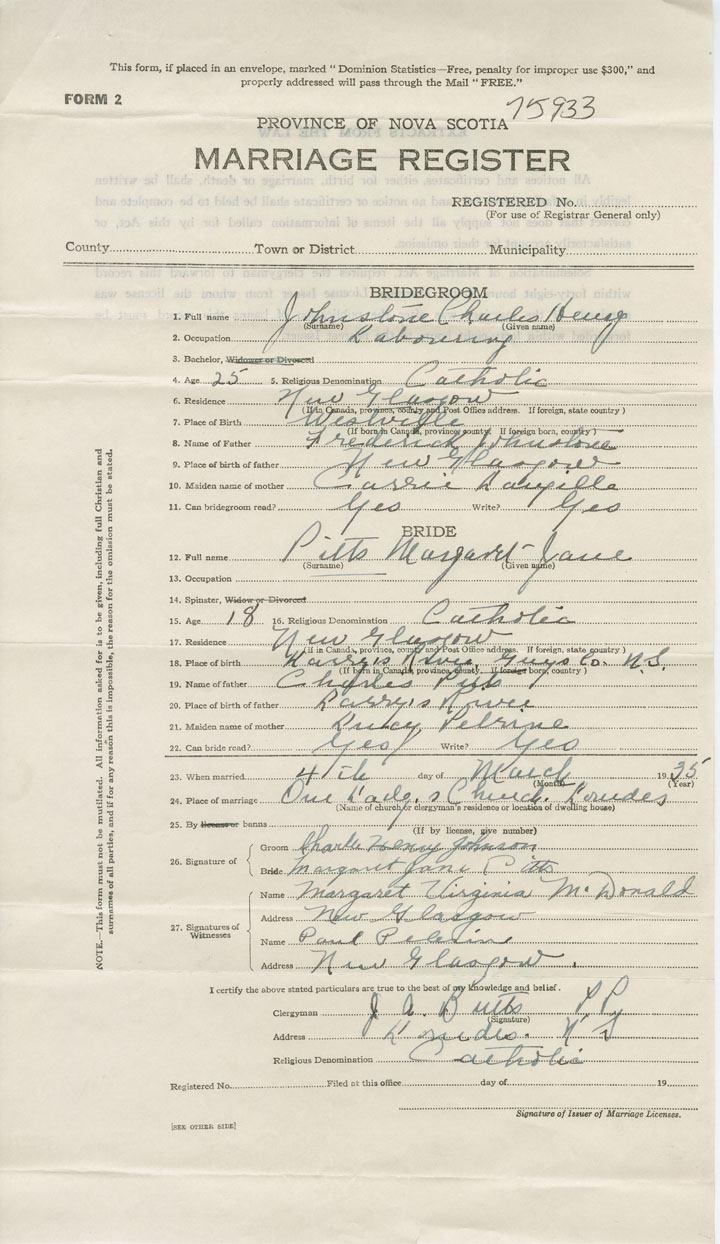 This form, if placed in an envelope, marked "Dominion Statistics—Free, penalty for improper use $300," and
properly addressed will pass through the Mail "FREE."
FORM 2
75933
PROVINCE OF NOVA SCOTIA
MARRIAGE REGISTER
REGISTERED No.
(For use of Registrar General only)
County Town or District Municipality
BRIDEGROOM
1. Full name Johnstone Charles Henry
(Surname) (Given name)
2. Occupation Labouring
3. Bachelor, Widower or Divorced
4. Age 25 5. Religious Denomination Catholic
6. Residence New Glasgow
(If in Canada, province, county and Post Office address. If foreign, state country)
7. Place of Birth Westville
(If born in Canada, province, county. If foreign born, country)
8. Name of Father Frederick Johnstone
9. Place of birth of father New Glasgow
10. Maiden name of mother Carrie Langille
11. Can bridegroom read? Yes Write? Yes
BRIDE
12. Full name Pitts Margaret Jane
(Surname) (Given name)
13. Occupation
14. Spinster, Widow or Divorced
15. Age 18 16. Religious Denomination Catholic
17. Residence New Glasgow
(If in Canada, province, county and Post Office address. If foreign, state country)
18. Place of birth Larry's River Guys Co. N.S.
(If born in Canada, province, county. If foreign born, country)
19. Name of father Charles Pitts
20. Place of birth of father Larry's River
21. Maiden name of mother Lucy Pelrine
22. Can bride read? Yes Write? Yes
23. When married 4th day of March 1935
(Month) (Year)
24. Place of marriage Our Lady's Church. Lourdes
(Name of church or clergyman's residence or location of dwelling house)
25. By license or banns
(If by license, give number)
26. Signature of
Groom Charle Henry Johnson
Bride Margaret Jane Pitts
27. Signatures of Witnesses
Name Margaret Virginia McDonald
Address New Glasgow
Name Paul Pelrine
Address New Glasgow.
I certify the above stated particulars are true to the best of my knowledge and belief.
Clergyman J. A. Butts P P
(Signature)
Address Lourdes. N S
Religious Denomination Catholic
Registered No. Filed at this office day of 19
Signature of Issuer of Marriage Licenses.
[SEE OTHER SIDE]
NOTE.—This form must not be mutilated. All information asked for is to be given, including full Christian and
surnames of all parties, and if for any reason this is impossible, the reason for the omission must be stated.